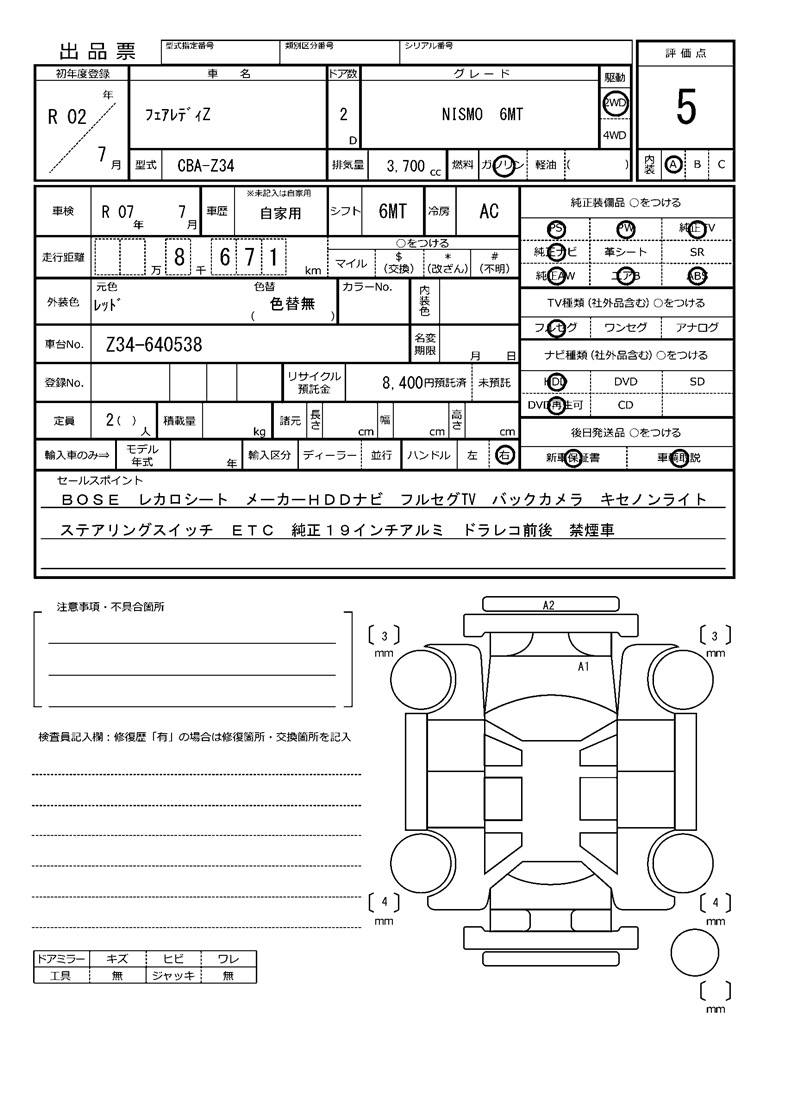 出品票
型式指定番号 類別区分番号 シリアル番号
評価点
5
内装 A B C
初年度登録 車名 ドア数 グレード 駆動
R 02 年 7 月 フェアレディZ 2 D NISMO 6MT 2WD 4WD
型式 CBA-Z34 排気量 3,700 cc 燃料 ガソリン 軽油 ( )
車検 R 07 年 7 月 車歴 ※未記入は自家用 自家用 シフト 6MT 冷房 AC
走行距離 万 8 千 6 7 1 km ○をつける
マイル $(交換) *(改ざん) #(不明)
外装色 元色 レッド 色替 色替無 ( ) カラーNo. 内装色
車台No. Z34-640538 名変期限 月 日
登録No. リサイクル預託金 8,400円預託済 未預託
定員 2( ) 人 積載量 kg 諸元 長さ cm 幅 cm 高さ cm
輸入車のみ⇒ モデル年式 年 輸入区分 ディーラー 並行 ハンドル 左 右
純正装備品 ○をつける
PS PW 純正TV
純正ナビ 革シート SR
純正AW エアB ABS
TV種類(社外品含む)○をつける
フルセグ ワンセグ アナログ
ナビ種類(社外品含む)○をつける
HDD DVD SD
DVD再生可 CD
後日発送品 ○をつける
新車保証書 車輌取説
セールスポイント
BOSE レカロシート メーカーHDDナビ フルセグTV バックカメラ キセノンライト
ステアリングスイッチ ETC 純正19インチアルミ ドラレコ前後 禁煙車
注意事項・不具合箇所
検査員記入欄:修復歴「有」の場合は修復箇所・交換箇所を記入
ドアミラー キズ ヒビ ワレ
工具 無 ジャッキ 無
A2
3 mm
3 mm
A1
4 mm
4 mm
mm